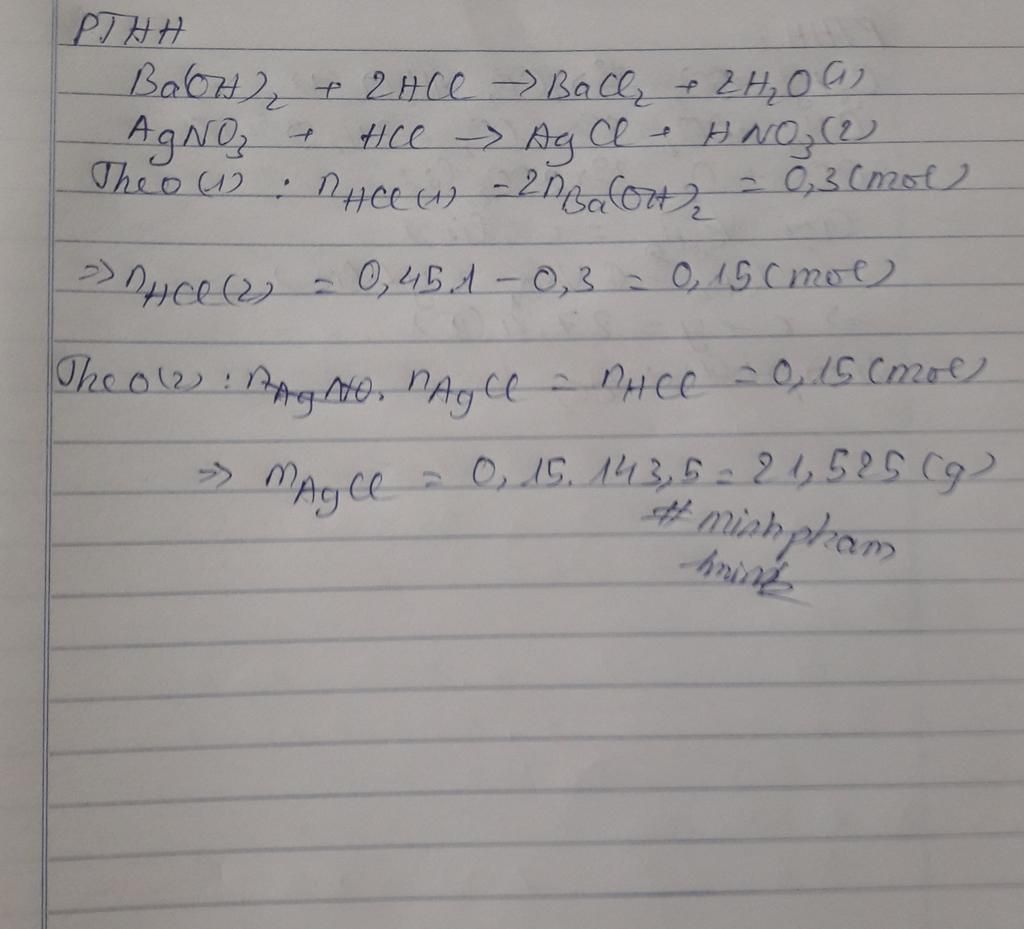 PTHH
Ba(OH)₂ + 2HCl → BaCl₂ + 2H₂O (1)
AgNO₃ + HCl → AgCl + HNO₃ (2)
Theo (1) : nHCl (1) = 2nBa(OH)₂ = 0,3 (mol)
⇒ nHCl (2) = 0,45.1 - 0,3 = 0,15 (mol)
Theo (2) : nAgCl = nHCl = 0,15 (mol)
⇒ mAgCl = 0,15.143,5 = 21,525 (g)
# minhpham